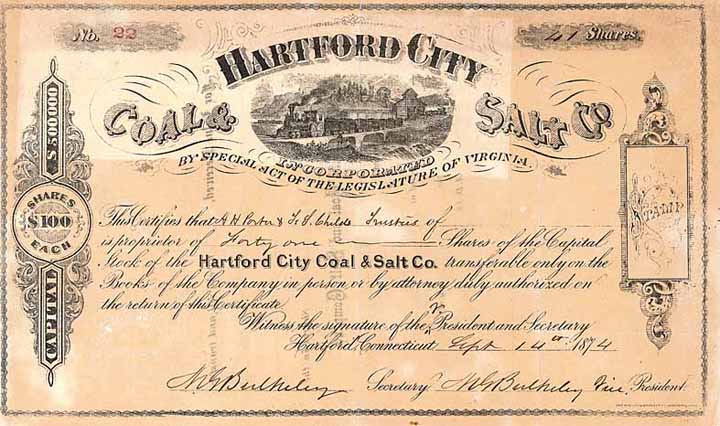 No. 22
41 Shares
HARTFORD CITY
COAL & SALT CO.
INCORPORATED
BY SPECIAL ACT OF THE LEGISLATURE OF VIRGINIA.
CAPITAL $500000
SHARES $100 EACH
STAMP
This Certifies that A H Porter & F. S. Childs Trustees of
is proprietor of Forty one Shares of the Capital
Stock of the Hartford City Coal & Salt Co. transferable only on the
Books of the Company in person or by attorney duly authorized on
the return of this Certificate.
Witness the signature of the V President and Secretary
Hartford, Connecticut, Sept 14th 1874
M G Bulkeley Secretary M G Bulkeley Vice President